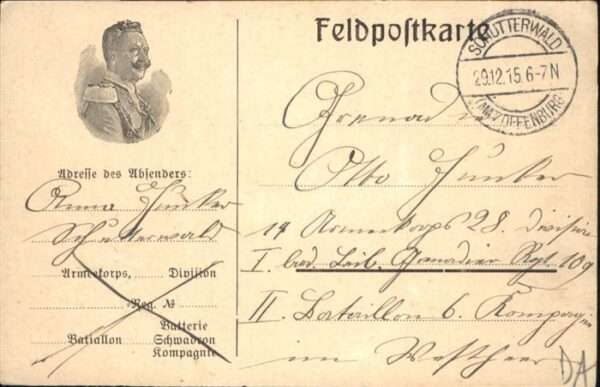 Feldpostkarte
SCHUTTERWALD
29.12.15.6-7N
(AMT OFFENBURG)
Grenadier
Otto Junker
14 Armeekorps 28. Division
I. bad. Leib. Grenadier Rgt. 109
II Bataillon 6. Kompagnie
im Westheer
Adresse des Absenders:
Anna Junker
Schutterwald
Armeekorps, Division
Reg. №
Batterie
Bataillon Schwadron
Kompagnie
DA